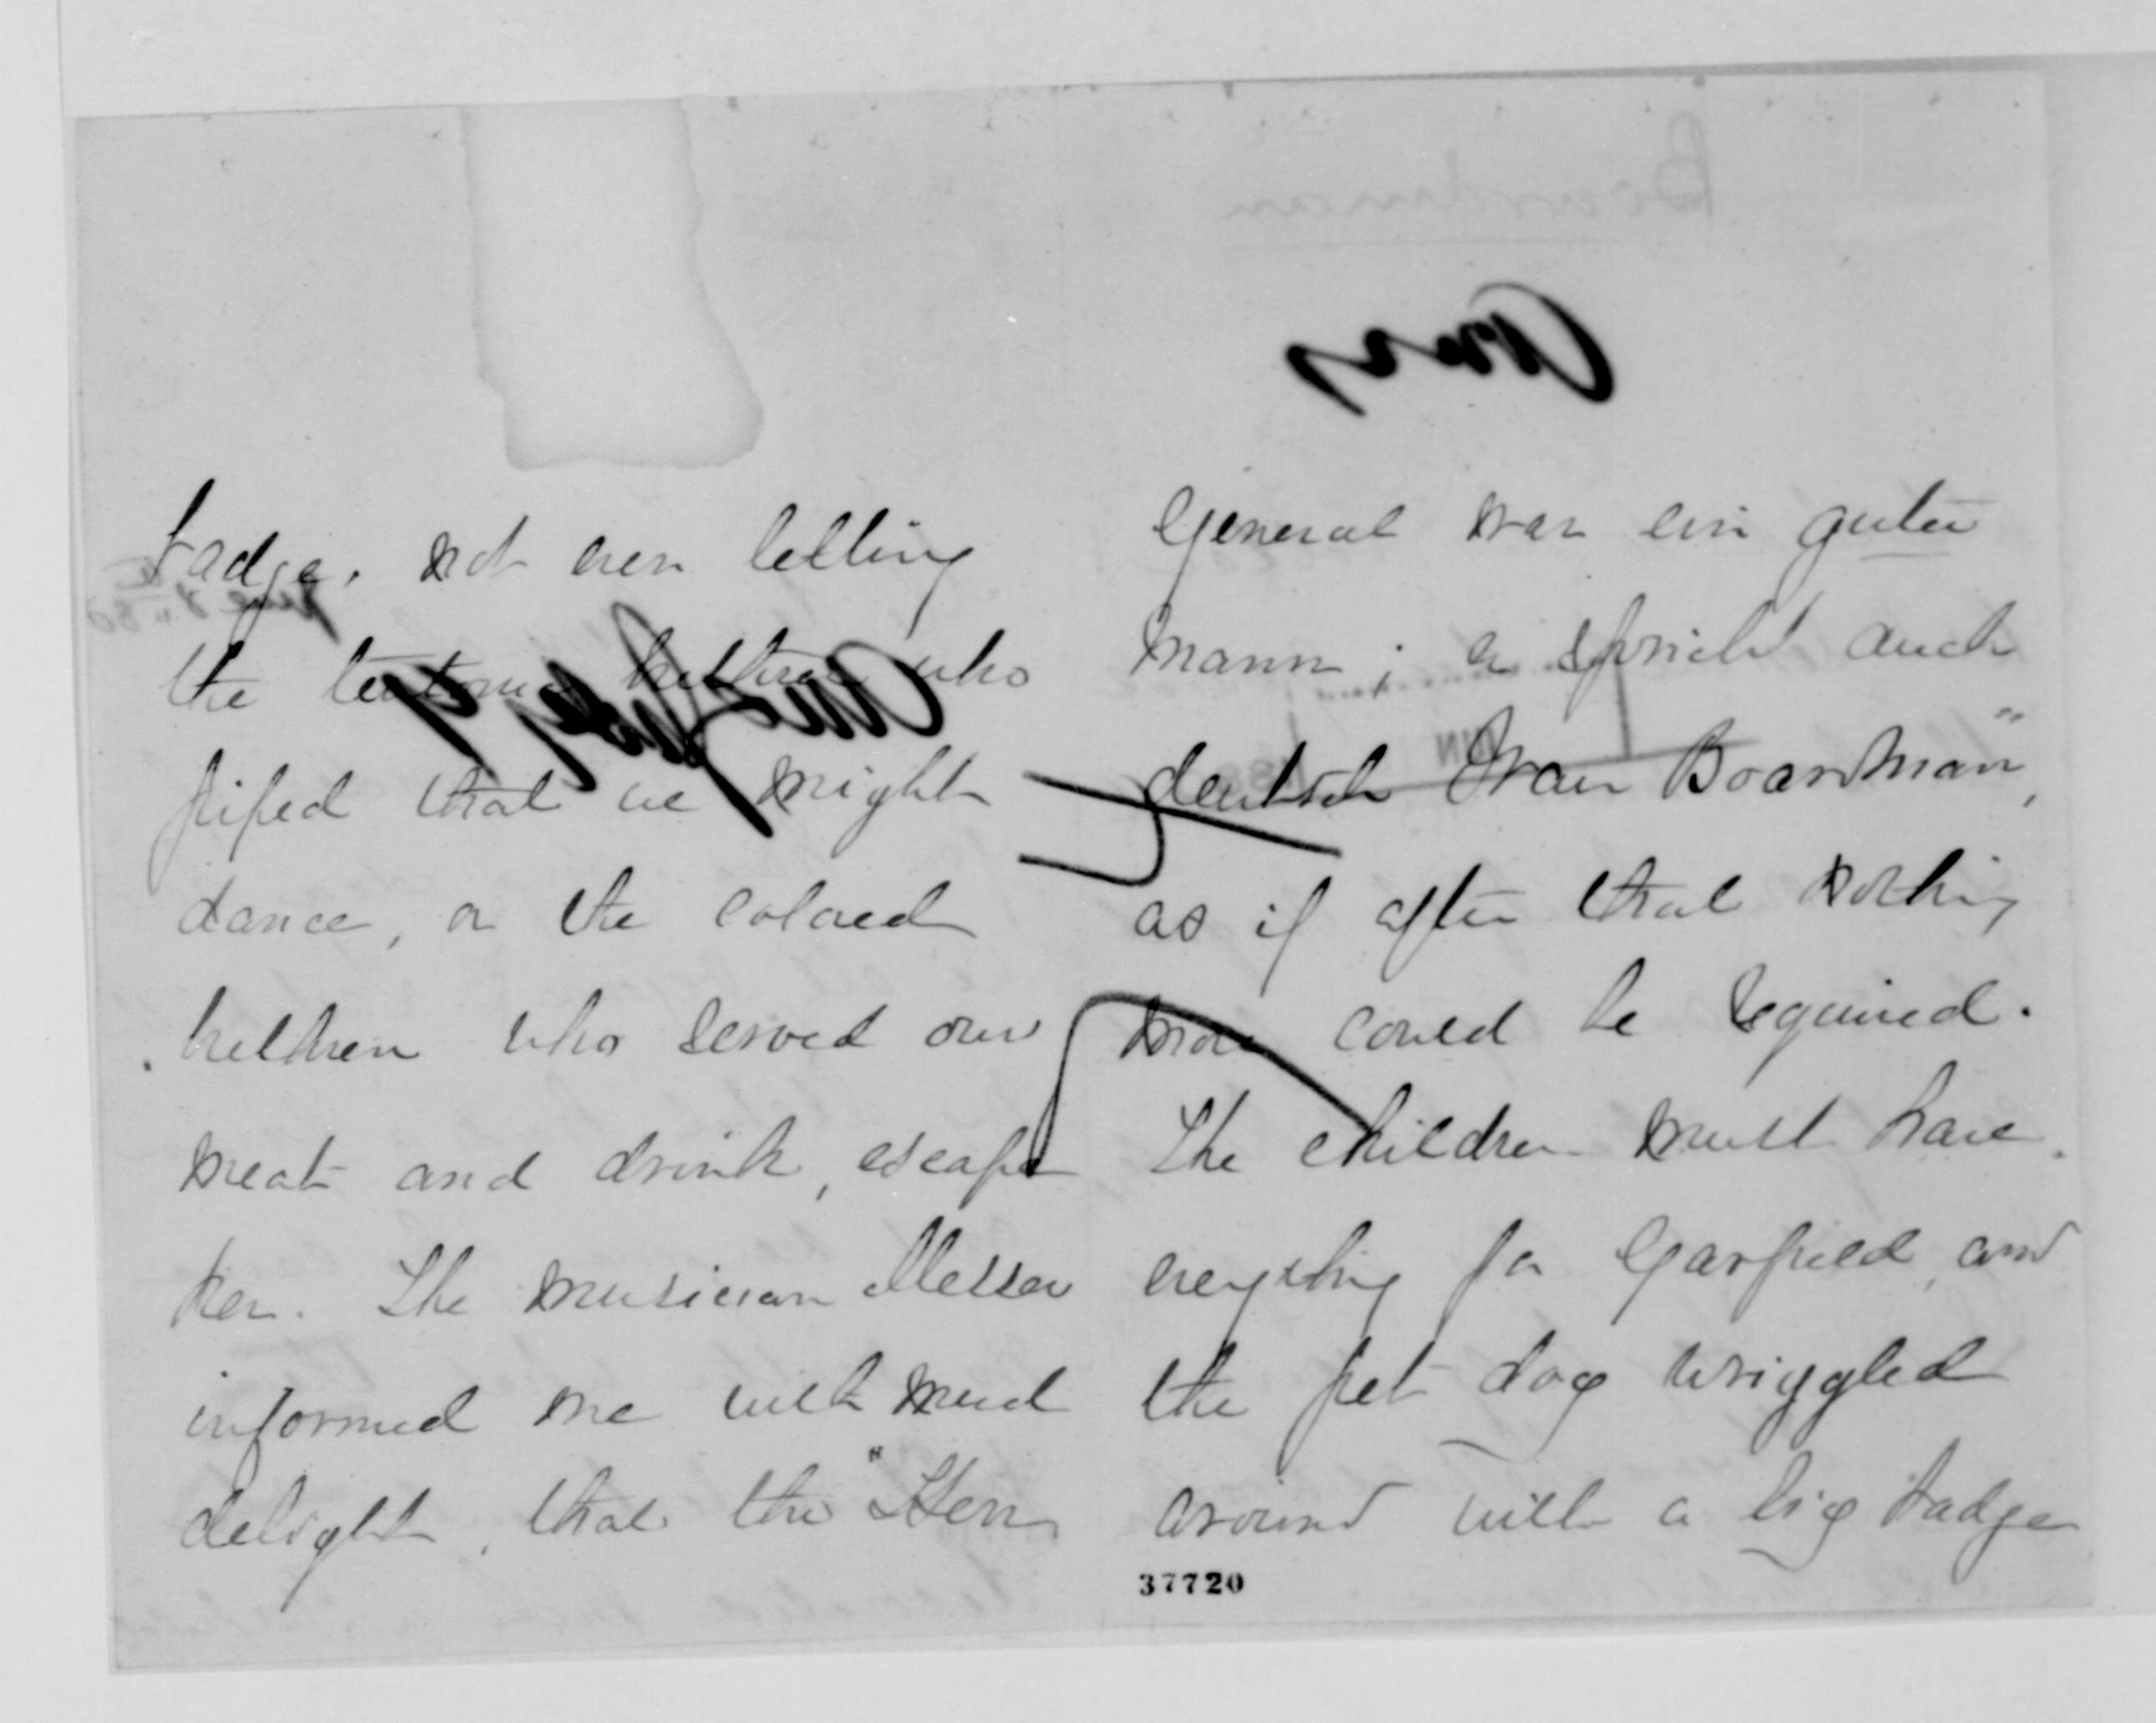 badge, not even letting
the teutonic brethren who
piped that we might
dance, or the colored
brethren who served our
meat and drink, escape
her. The musician Messer
informed me with much
delight, that the "Herr
General war ein guter
mann; er spricht auch
deutsch Frau Boardman",
as if after that nothing
more could be required.
The children must have
everything for Garfield, and
the pet dog wriggled
around with a big badge
37720
Boardman